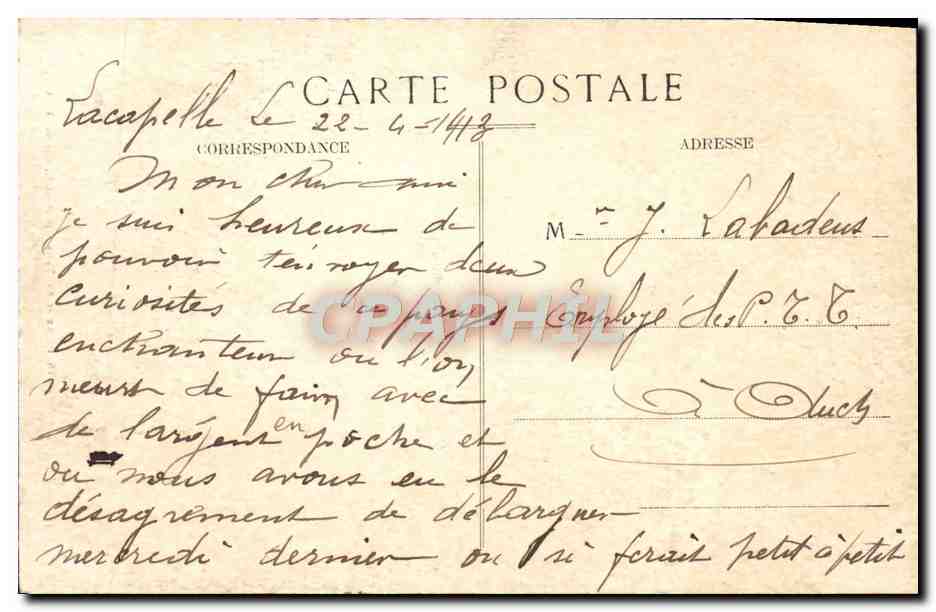 CARTE POSTALE
Lacapelle Le 22-4-1413
CORRESPONDANCE
Mon cher ami
je suis heureux de
pouvoir t'envoyer deux
curiosités de ce pays
enchanteur ou l'on
meurt de faim avec
de l'argent en poche et
ou nous avons eu le
désagrement de débarquer
mercredi dernier ou si ferait petit à petit
ADRESSE
Mr J. Labadens
Employé des P.T.T.
à Auch
CPAPHIL